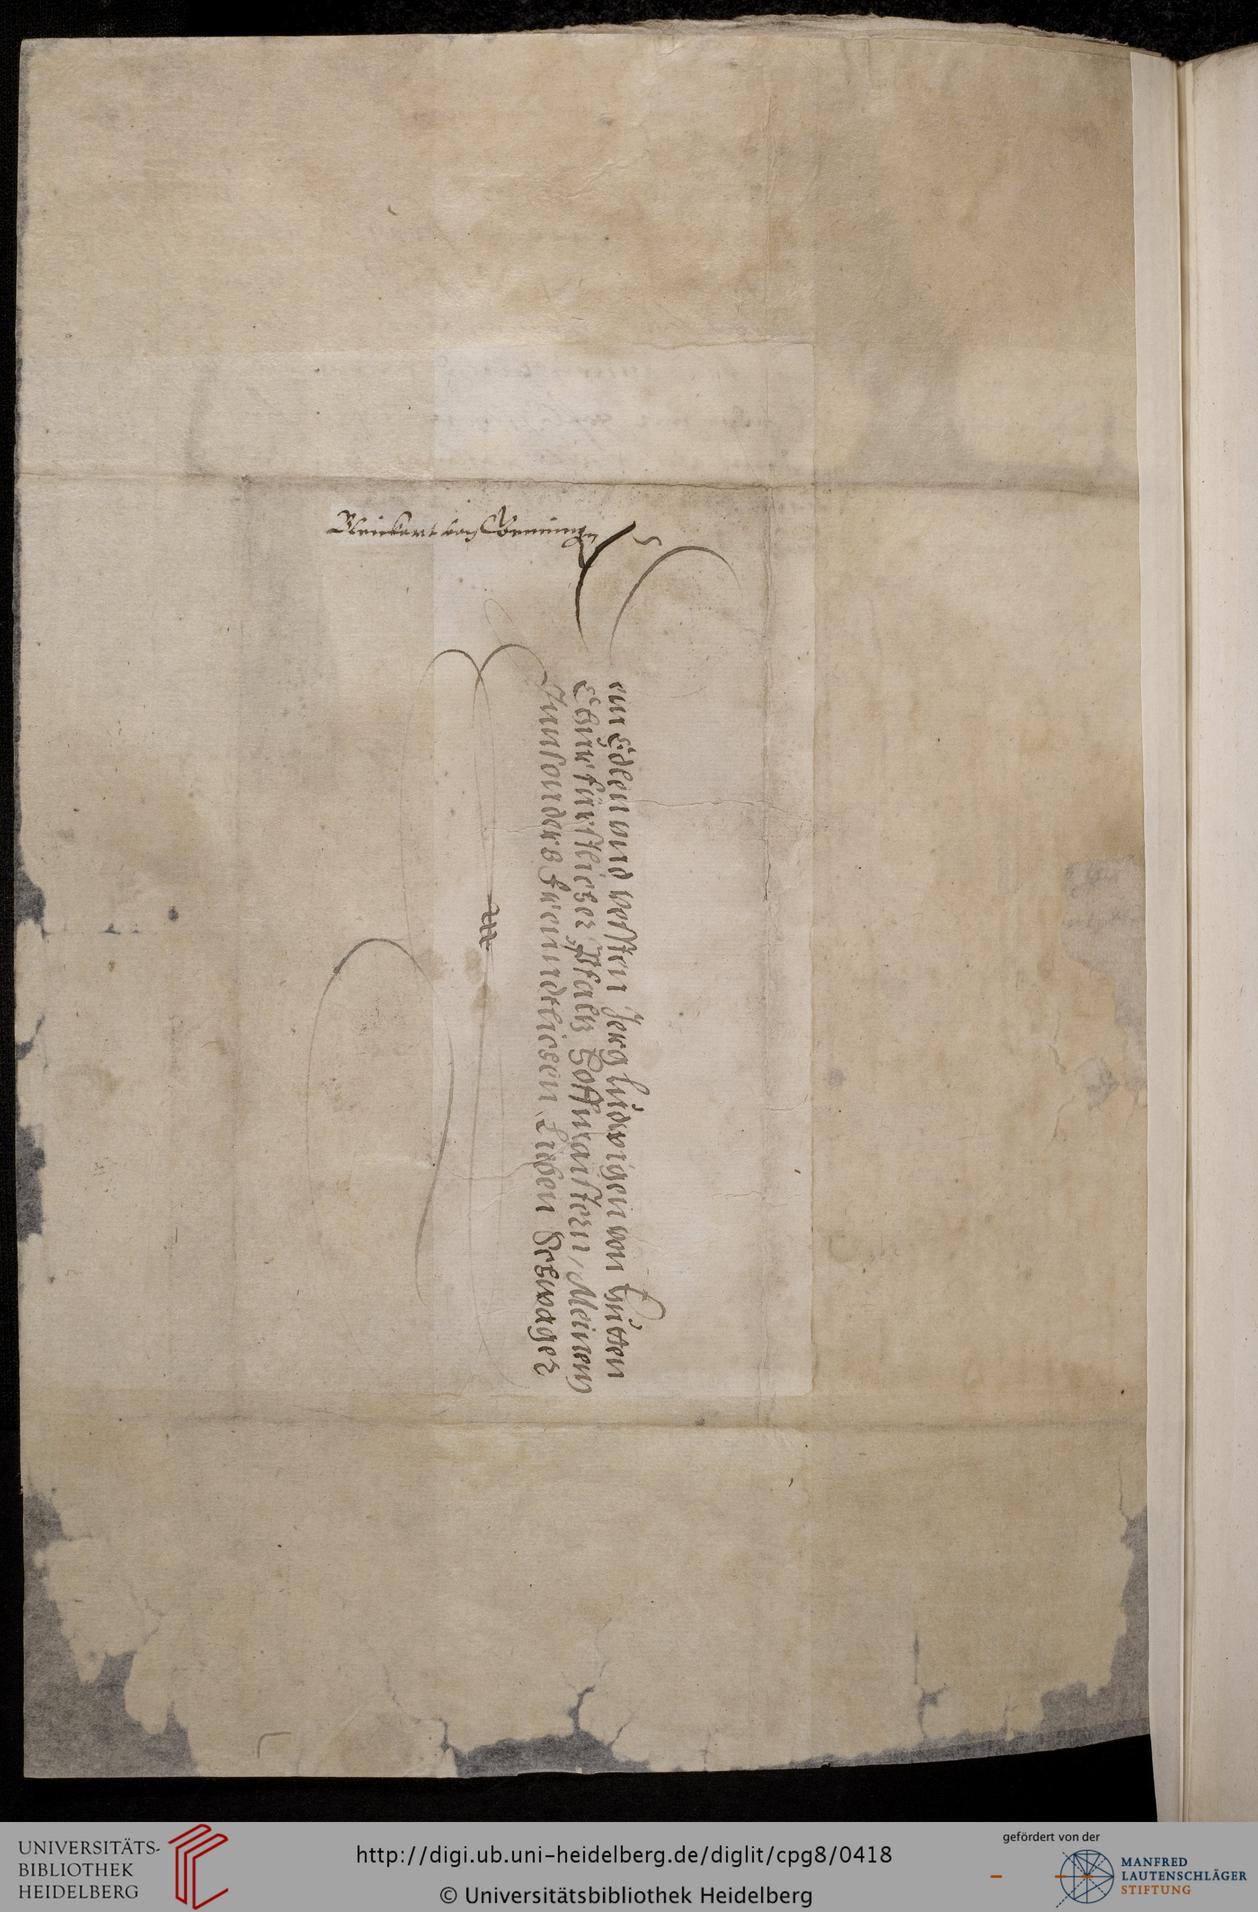 Bleickart von Gemmingen
Dem Edlen vnd vessten Jerg Ludwigen von Hutten
Churfürstlicher Pfaltz Hoffmaistern, Meinem
Innsonders freundtlichen Lieben Schwager
UNIVERSITÄTS-
BIBLIOTHEK
HEIDELBERG
http://digi.ub.uni-heidelberg.de/diglit/cpg8/0418
© Universitätsbibliothek Heidelberg
gefördert von der
MANFRED
LAUTENSCHLÄGER
STIFTUNG